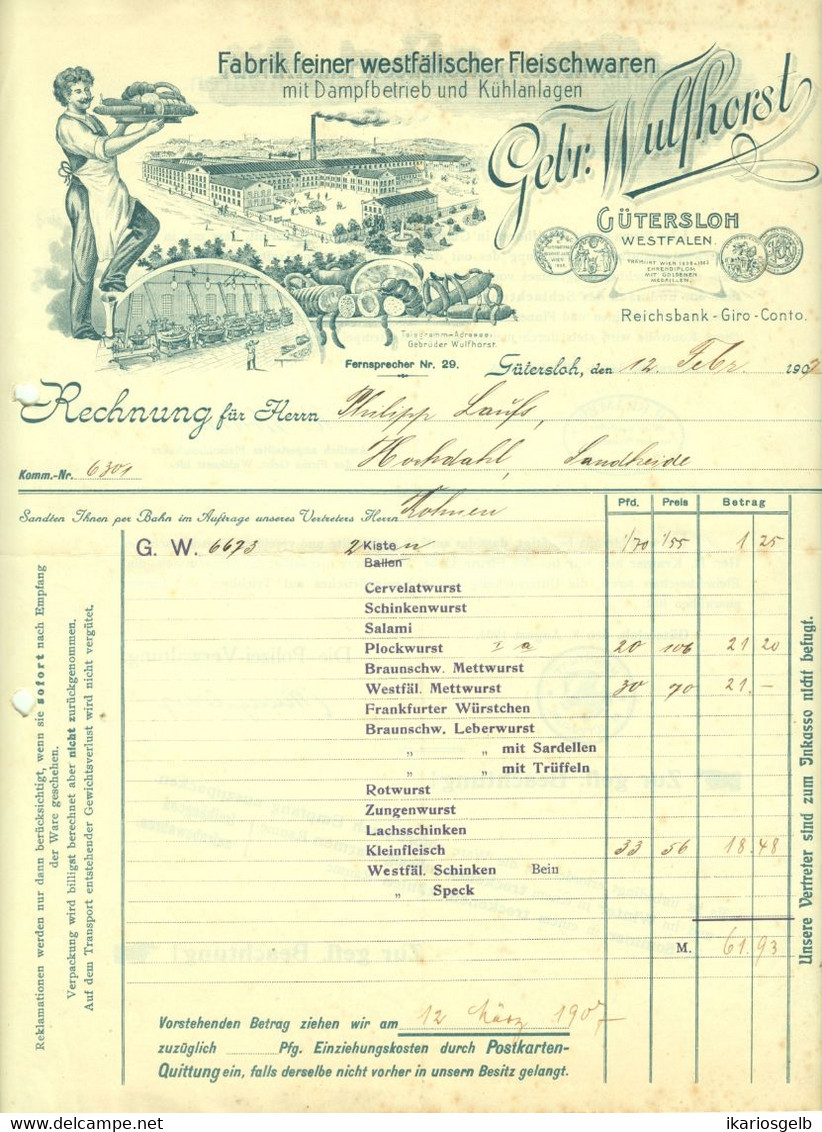 Fabrik feiner westfälischer Fleischwaren
mit Dampfbetrieb und Kühlanlagen
Gebr. Wulfhorst
GÜTERSLOH
WESTFALEN.
EHRENDIPLOM
MIT GOLDENEN
MEDAILLEN.
Reichsbank-Giro-Conto.
Telegramm-Adresse:
Gebrüder Wulfhorst.
Fernsprecher Nr. 29.
Gütersloh, den 12. Febr. 1907
Rechnung für Herrn Philipp Laufs,
Hochdahl, Sandheide
Komm.-Nr. 6301
Sandten Ihnen per Bahn im Auftrage unseres Vertreters Herrn Kohnen
Pfd. Preis Betrag
G. W. 6673 2 Kisten 1/70 1/55 1 25
Ballen
Cervelatwurst
Schinkenwurst
Salami
Plockwurst I a 20 106 21 20
Braunschw. Mettwurst
Westfäl. Mettwurst 30 70 21 –
Frankfurter Würstchen
Braunschw. Leberwurst
„ „ mit Sardellen
„ „ mit Trüffeln
Rotwurst
Zungenwurst
Lachsschinken
Kleinfleisch 33 56 18.48
Westfäl. Schinken Bein
„ Speck
M. 61.93
Vorstehenden Betrag ziehen wir am 12 März 1907
zuzüglich Pfg. Einziehungskosten durch Postkarten-
Quittung ein, falls derselbe nicht vorher in unsern Besitz gelangt.
Reklamationen werden nur dann berücksichtigt, wenn sie sofort nach Empfang
der Ware geschehen.
Verpackung wird billigst berechnet aber nicht zurückgenommen.
Auf dem Transport entstehender Gewichtsverlust wird nicht vergütet.
Unsere Vertreter sind zum Inkasso nicht befugt.
ikariosgelb